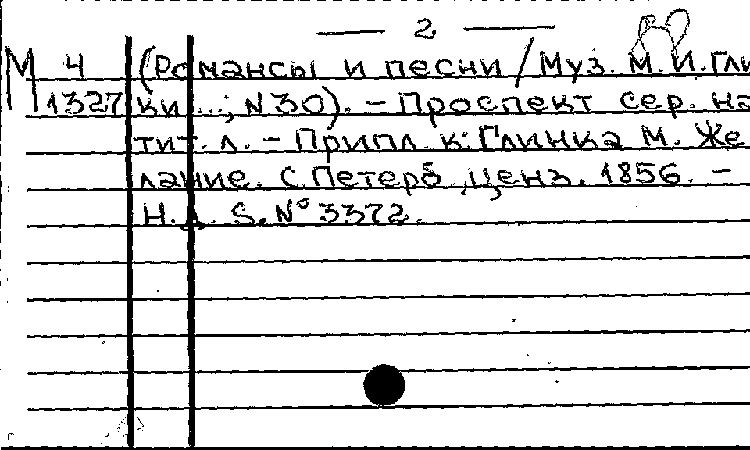 — 2 —
М 4 (Романсы и песни / Муз. М. И. Гли
1327 ки...; N 30). – Проспект сер. на
тит. л. – Припл. к: Глинка М. Же
лание. С. Петерб., ценз. 1856. –
Н. Д. S. № 3372.